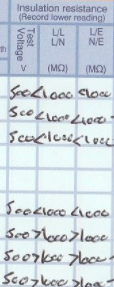 Insulation resistance
(Record lower reading)
Test Voltage
L/L L/N
L/E N/E
V
(MΩ)
(MΩ)
500 <1000 <1000
500 <1000 <1000
500 <1000 <1000
500 <1000 <1000
500 >1000 >1000
500 >1000 >1000
500 >1000 >1000